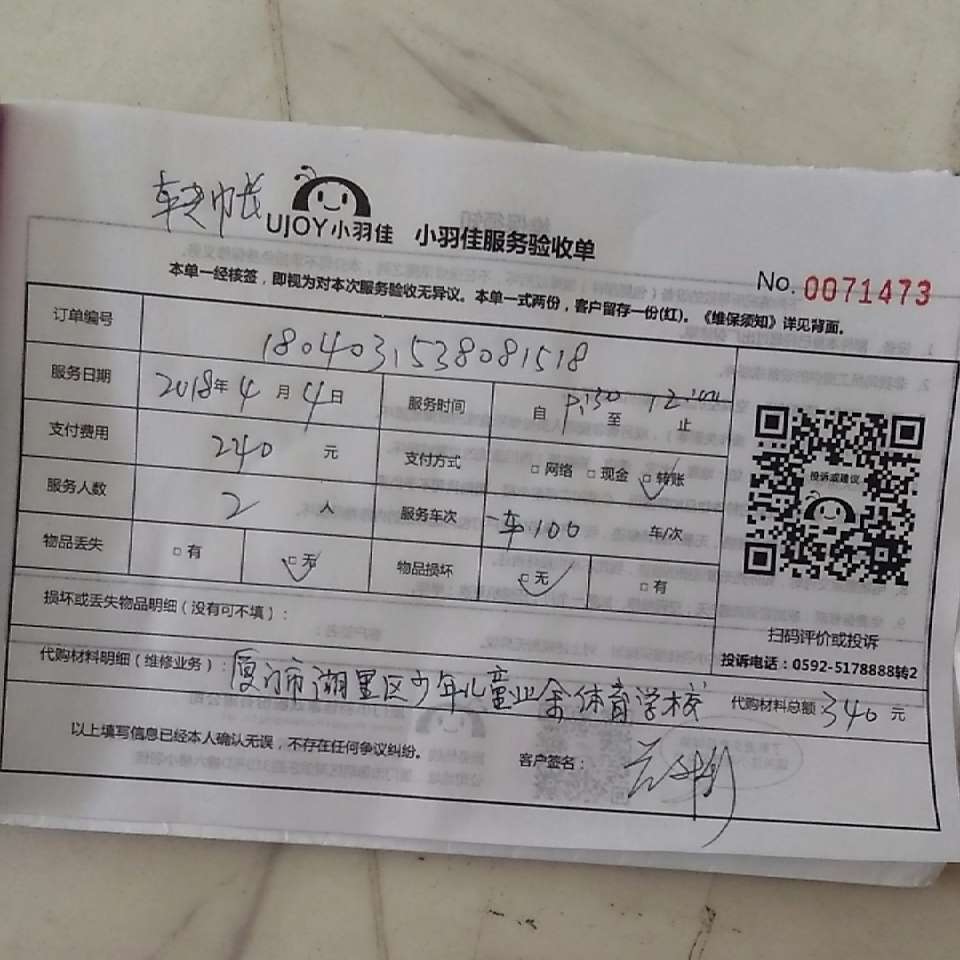 转帐
UJOY小羽佳 小羽佳服务验收单
No. 0071473
本单一经核签，即视为对本次服务验收无异议。本单一式两份，客户留存一份(红)。《维保须知》详见背面。
订单编号 1804031538081518
服务日期 2018年4月4日 服务时间 自 至 12:00 止
支付费用 240 元 支付方式 □网络 □现金 □转账
服务人数 2 人 服务车次 一车100 车/次
物品丢失 □有 □无 物品损坏 □无 □有
损坏或丢失物品明细（没有可不填）：
投诉或建议
扫码评价或投诉
投诉电话：0592-5178888转2
代购材料明细（维修业务）：厦门市湖里区少年儿童业余体育学校 代购材料总额 340 元
以上填写信息已经本人确认无误，不存在任何争议纠纷。 客户签名：